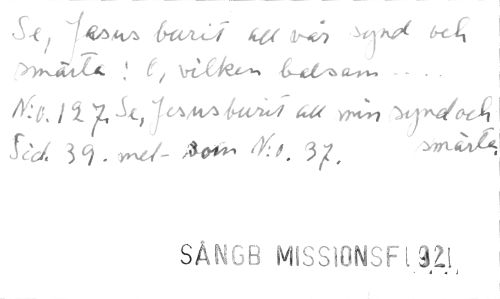 Se, Jesus burit all vår synd och
smärta! O, vilken balsam....
N:o. 127. Se, Jesus burit all min synd och
smärta.
Sid. 39. mel- som N:o. 37.
SÅNGB MISSIONSF 1921